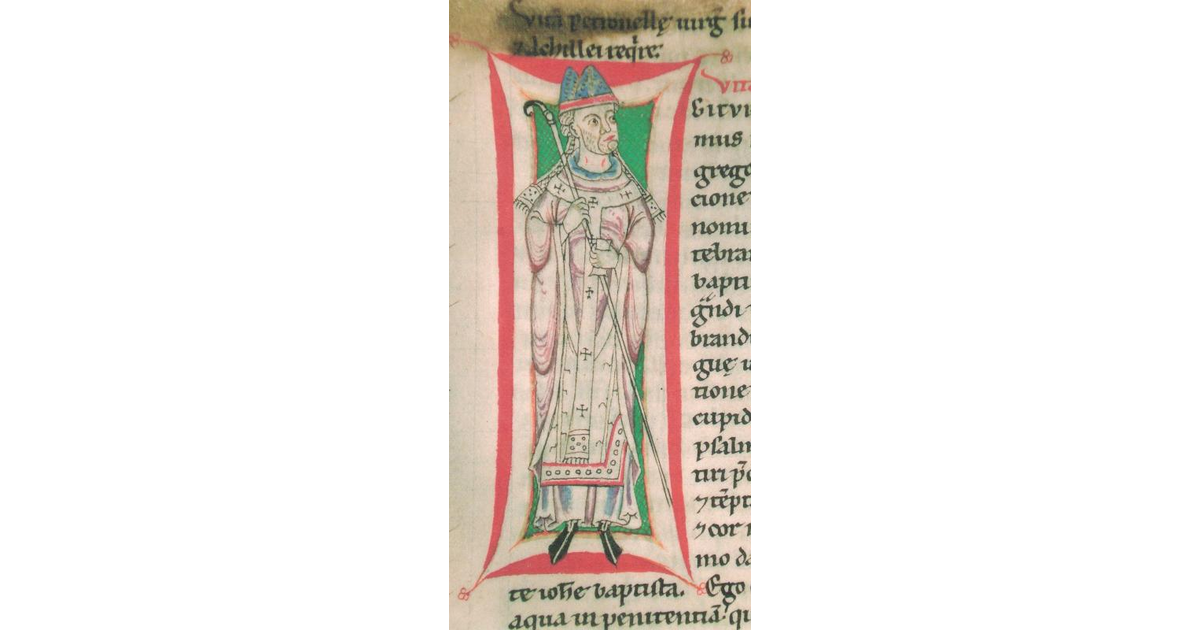 Vitā petronellę uirḡ
⁊ Achillei reqͥre:
Vita
mus
grego
cione
nonu
tebra
bapti
gn̄di
brand
guę u
tione
cupid
psalm
tiri
⁊ cor
mo da
te ioh̄e baptista. Ego
aqua in penitentiā. qu